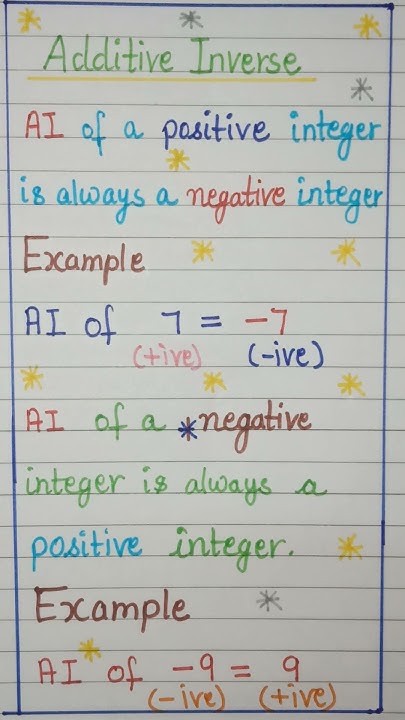 Additive Inverse
AI of a positive integer
is always a negative integer
Example
AI of 7 = -7
(+ive) (-ive)
AI of a *negative
integer is always a
positive integer.
Example
AI of -9 = 9
(-ive) (+ive)